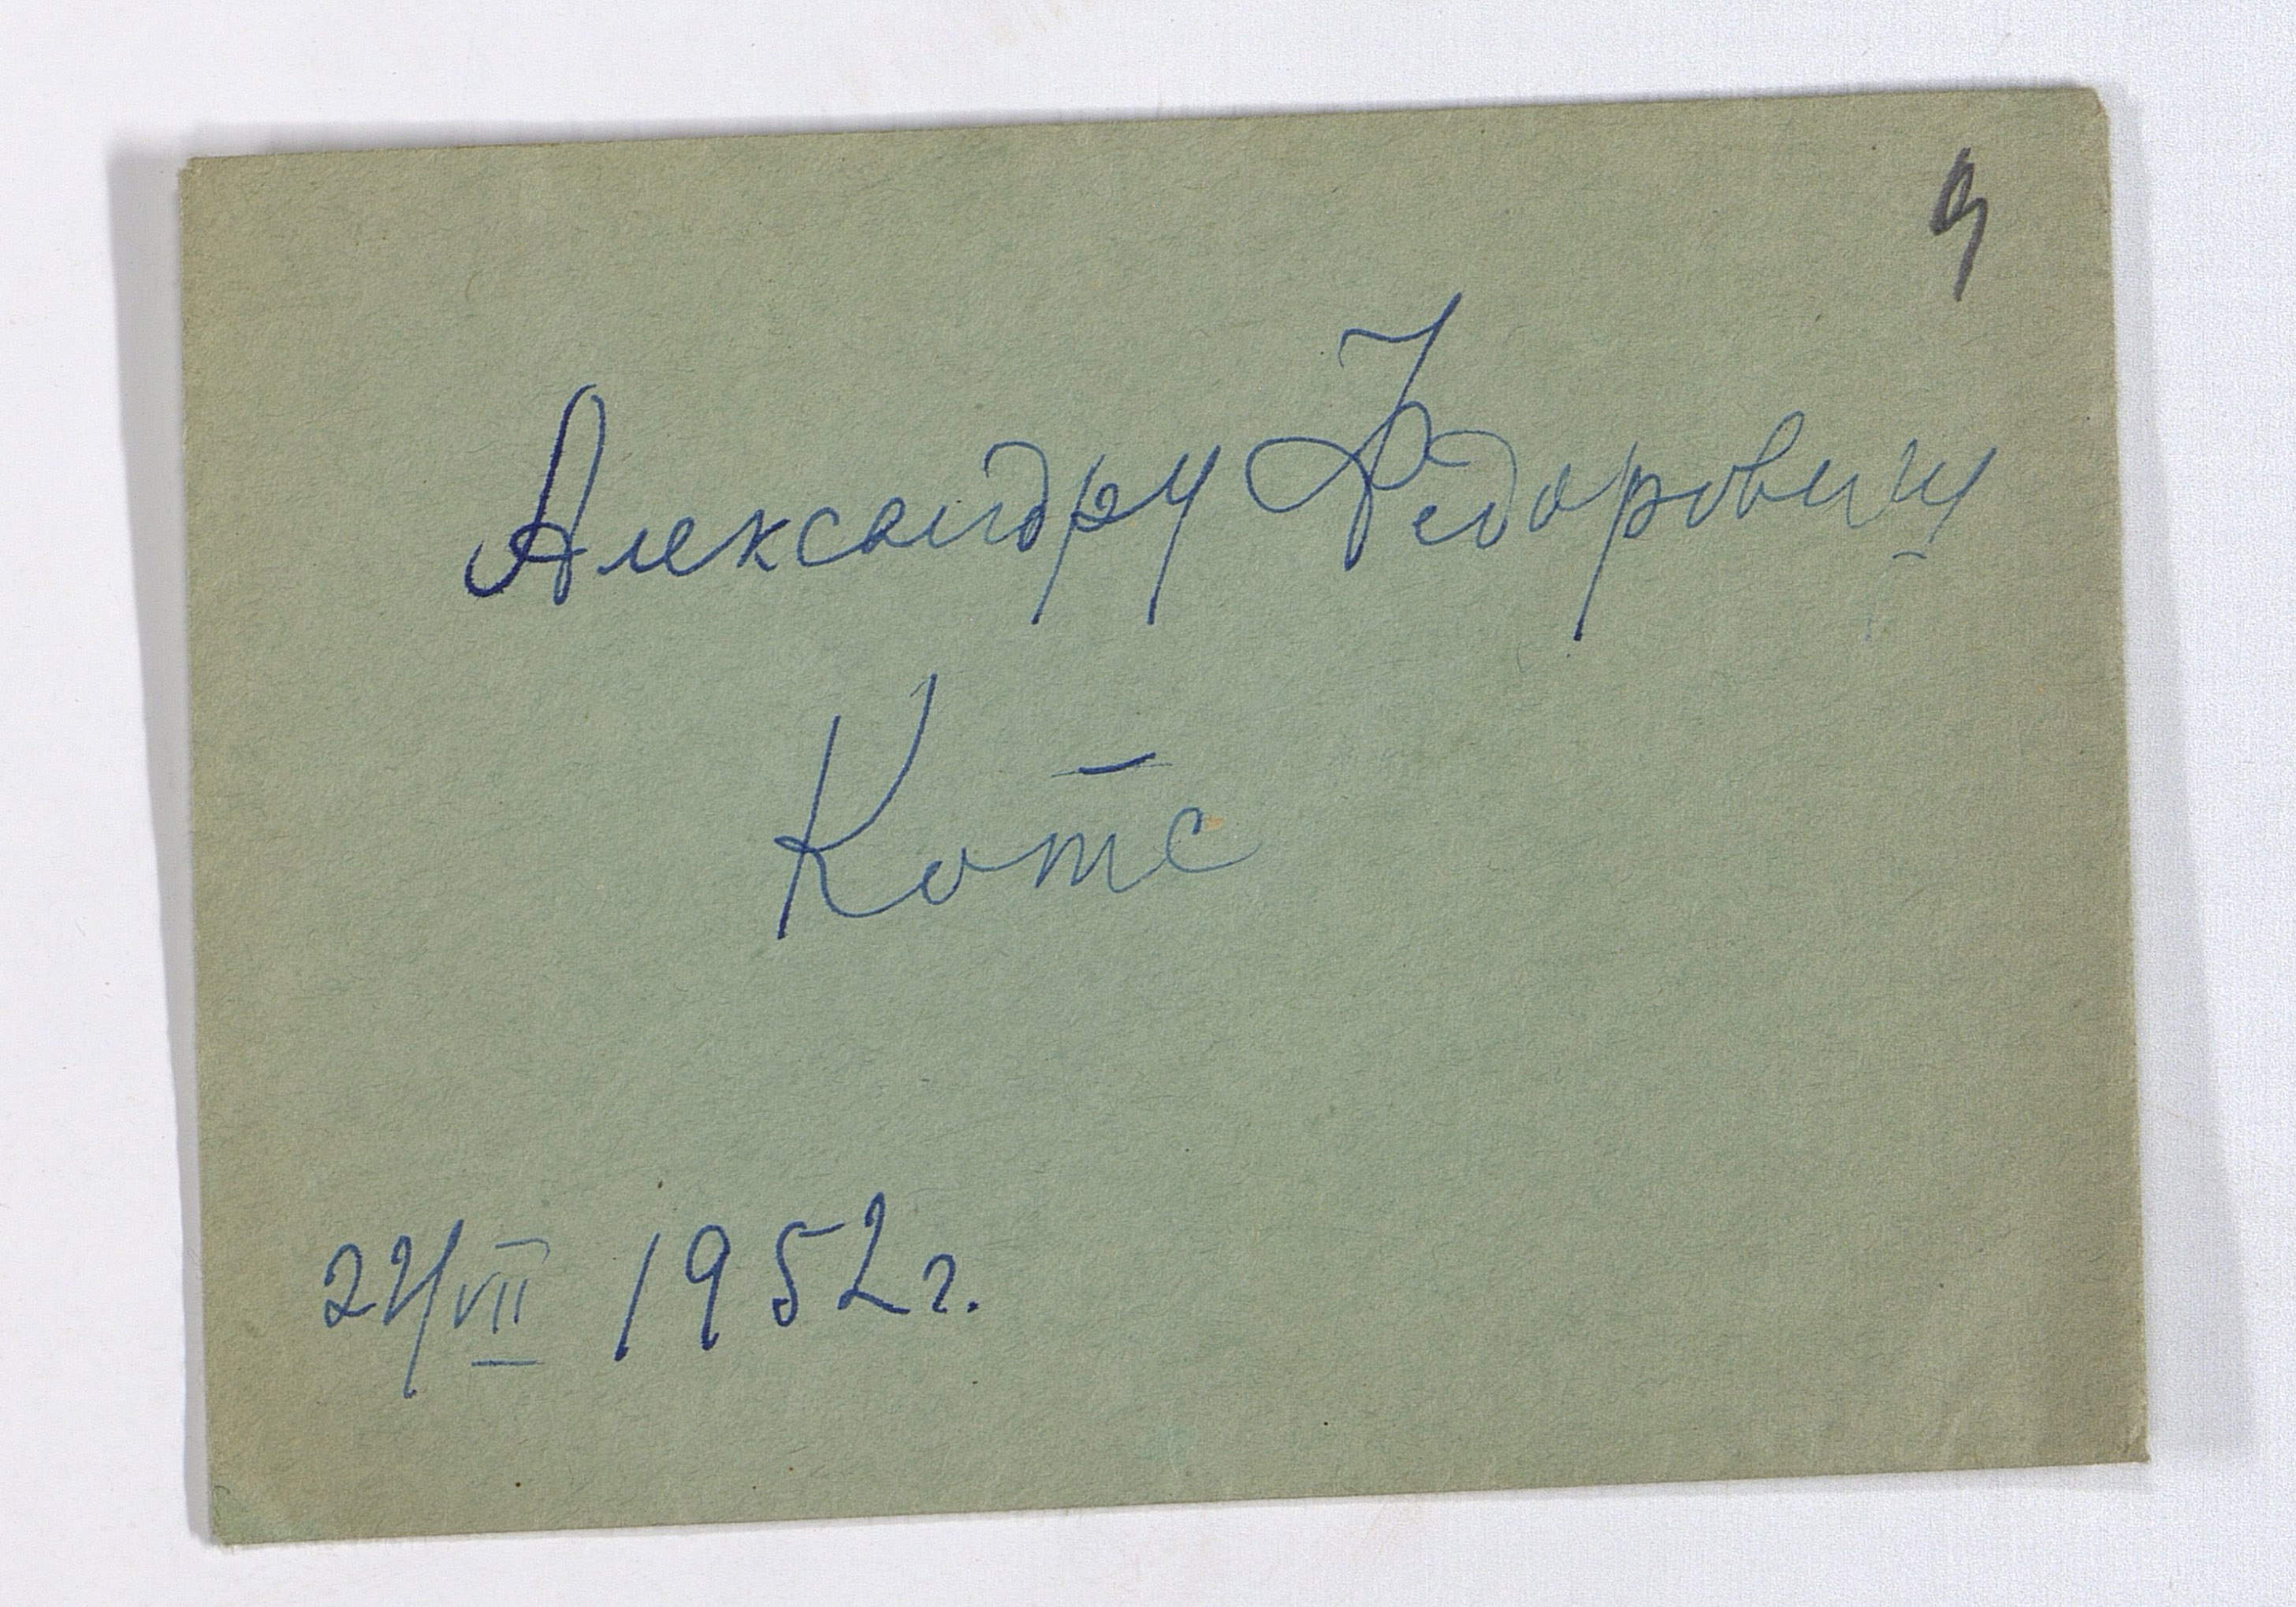 9
Александру Федоровичу
Котс
24/VII 1952 г.